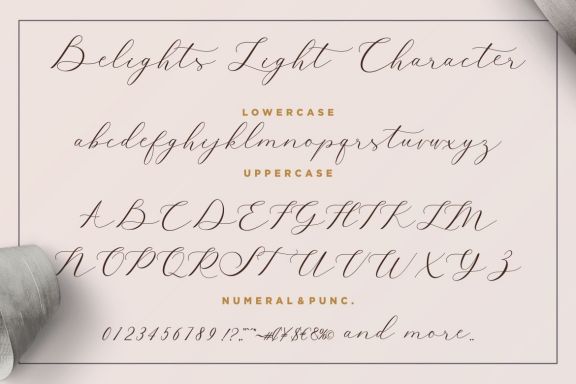 Belights Light Character
LOWERCASE
abcdefghijklmnopqrstuvwxyz
UPPERCASE
A B C D E F G H I K L M
N O P Q R S T U V W X Y Z
NUMERAL & PUNC.
0123456789 !? and more..